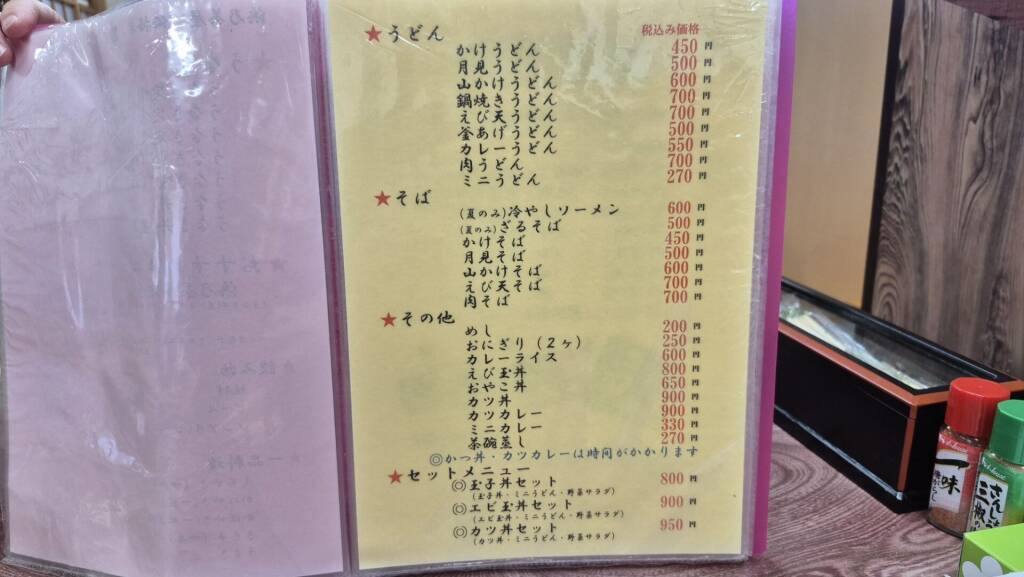 ★うどん 税込み価格
かけうどん 450円
月見うどん 500円
山かけうどん 600円
鍋焼きうどん 700円
えび天うどん 700円
釜あげうどん 500円
カレーうどん 550円
肉うどん 700円
ミニうどん 270円
★そば
(夏のみ)冷やしソーメン 600円
(夏のみ)ざるそば 500円
かけそば 450円
月見そば 500円
山かけそば 600円
えび天そば 700円
肉そば 700円
★その他
めし 200円
おにぎり(2ヶ) 250円
カレーライス 600円
えび玉丼 800円
おやこ丼 650円
カツ丼 900円
カツカレー 900円
ミニカレー 330円
茶碗蒸し 270円
◎かつ丼・カツカレーは時間がかかります
★セットメニュー
◎玉子丼セット 800円
(玉子丼・ミニうどん・野菜サラダ)
◎エビ玉丼セット 900円
(エビ玉丼・ミニうどん・野菜サラダ)
◎カツ丼セット 950円
(カツ丼・ミニうどん・野菜サラダ)
一味